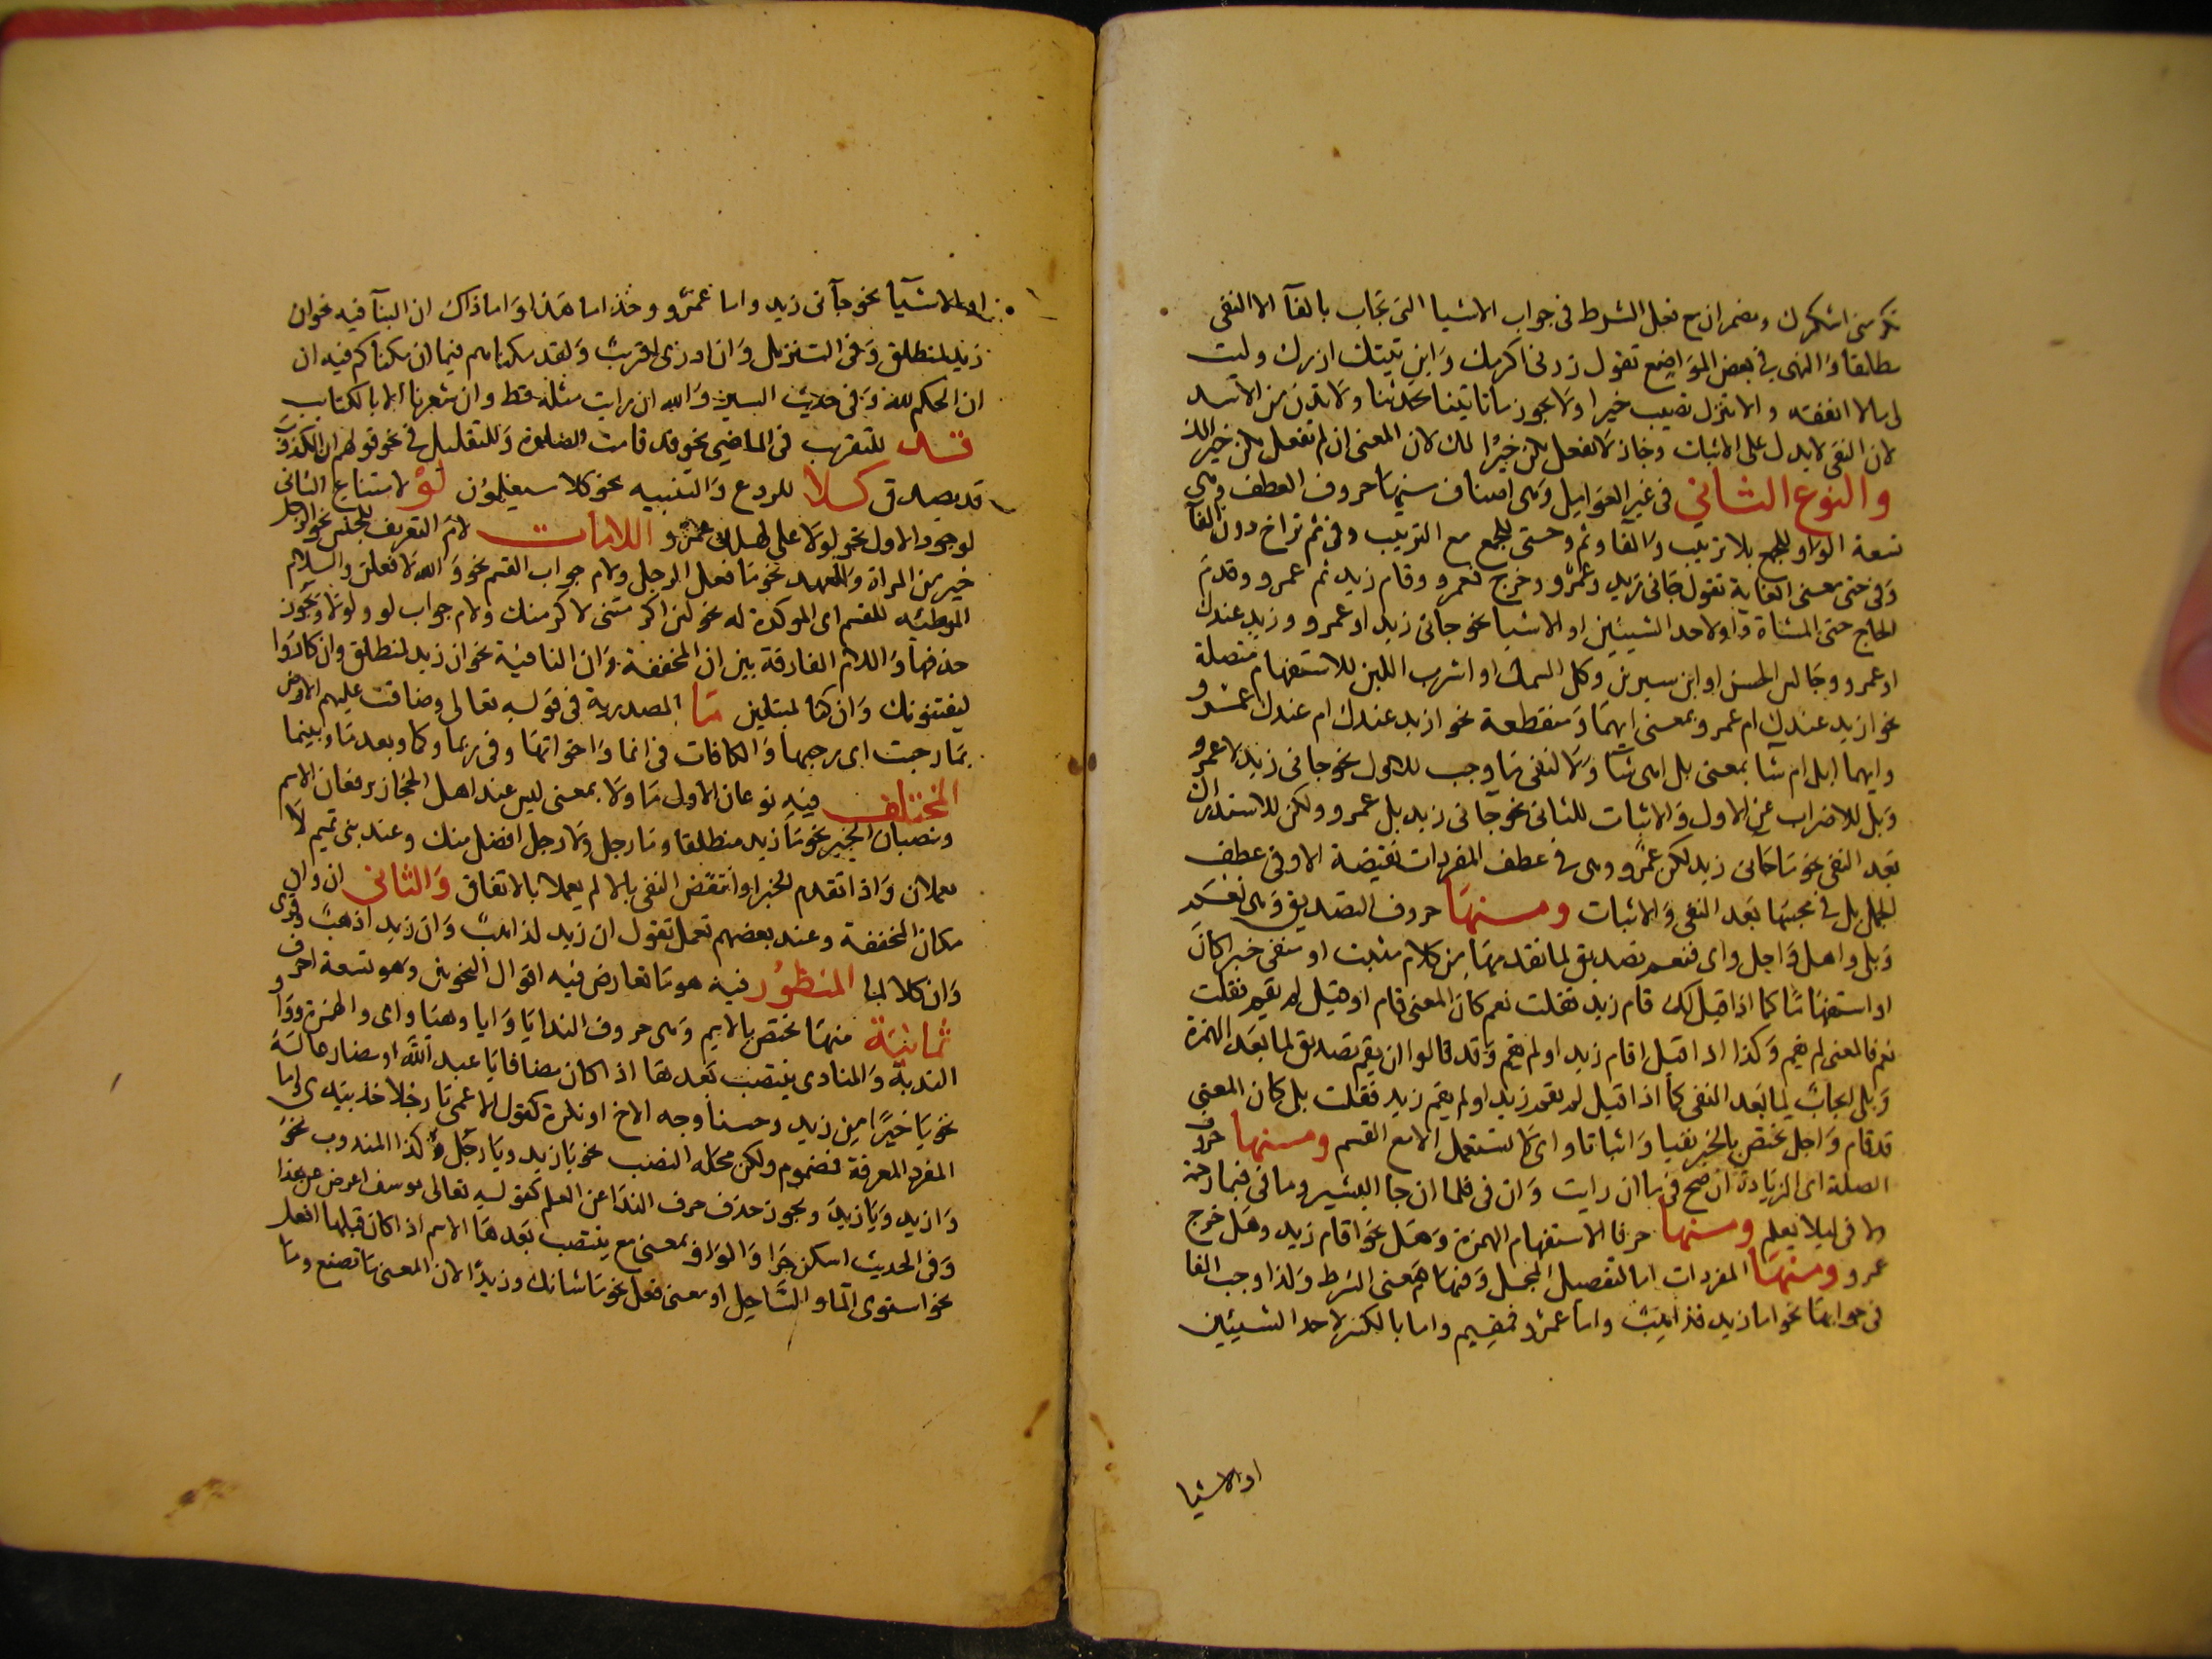 تكرمني اشكرك ويضمر ان مع فعل الشرط في جواب الاشيا التي تجاب بالفآ الا النفي
مطلقا والنهي في بعض المواضع تقول زرني اكرمك واين بيتك ازرك وليت
لي مالا انفقه والا تنزل تصيب خيرا ولا يجوز ما تاتينا تحدثنا ولا تدن من الاسد
لان النفي لا يدل على الاثبات وجاز لا تفعل يكن خيرا لك لان المعنى ان لم تفعل يكن خيرا لك
والنوع الثاني في غير العوامل وهي اصناف منها حروف العطف وهي
تسعة الواو للجمع بلا ترتيب والفآ وثم وحتى للجمع مع الترتيب وفي ثم تراخ دون الفآ
وفي حتى معنى الغاية تقول جاني زيد وعمرو وخرج فعمرو وقام زيد ثم عمرو وقدم
الحاج حتى المشاة واو لاحد الشيئين او الاشيا نحو جاني زيد او عمرو وزيد عندك
او عمرو وجالس الحسن او ابن سيرين وكل السمك او اشرب اللبن للاستفهام متصلة
نحو ازيد عندك ام عمرو بمعنى ايهما ومنقطعة نحو ازيد عندك ام عندك عمرو
وانها لابل ام شآ بمعنى بل اهي شآ ولا لنفي ما وجب للاول نحو جاني زيد لا عمرو
وبل للاضراب عن الاول والاثبات للثاني نحو جآني زيد بل عمرو ولكن للاستدراك
بعد النفي نحو ما جاني زيد لكن عمرو وهي في عطف المفردات نقيضة لا وفي عطف
الجمل بل في مجيئها بعد النفي والاثبات ومنها حروف التصديق وهي نعم
وبلى واجل واي فنعم تصديق لما تقدمها من كلام مثبت او منفي خبرا كان
او استفهاما كما اذا قيل لك قام زيد فقلت نعم كان المعنى قام او قيل لم يقم فقلت
نعم فالمعنى لم يقم وكذا اذا قيل اقام زيد او لم يقم وقد قالوا ان نعم تصديق لما بعد الهمزة
وبلى ايجاب لما بعد النفي كما اذا قيل لم يقم زيد او لم يقم زيد فقلت بلى كان المعنى
قد قام واجل يختص بالخبر نفيا واثباتا واي لا تستعمل الا مع القسم ومنها حروف
الصلة اي الزيادة ان صح في ما ان رايت وان في فلما ان جا البشير وما في فبما رحمة
ولا في ليلا يعلم ومنها حرفا الاستفهام الهمزة وهل نحو اقام زيد وهل خرج
عمرو ومنها المفردات اما لتفصيل المجمل وفيها معنى الشرط ولذا وجب الفا
في جوابها نحو اما زيد فذاهب واما عمرو فمقيم واما بالكسر لاحد الشيئين
او الاشيا
او الاشيآ نحو جآني زيد واما عمرو وخذ اما هذا واما ذاك ان البنآ فيه نحو ان
زيد لمنطلق وفي التنزيل وان ادري اقريب ولقد مكناهم فيما ان مكناكم فيه ان
ان الحكم لله وفي حديث السير والله ان رايت مثله قط وان شعرنا الا بالكتاب
قد للتقريب في الماضي نحو قد قامت الصلوة وللتقليل في نحو قولهم ان الكذوب
قد يصدق كلا للردع والتنبيه نحو كلا سيعلمون لو لامتناع الثاني
لوجود الاول نحو لولا علي لهلك عمر و اللامات لام التعريف للجنس نحو الرجل
خير من المراة وللعهد نحو ما فعل الرجل ولام جواب القسم نحو والله لافعلن والسلام
الموطئه للقسم اي الموكدة له نحو لئن اكرمتني لاكرمنك ولام جواب لو ولولا ويجوز
حذفها واللام الفارقة بين ان المخففة وان النافية نحو ان زيد لمنطلق وان كادوا
ليفتنونك وان كنا لمبتلين ما المصدرية في قوله تعالى وضاقت عليهم الارض
بما رحبت اي برحبها والكافات في انما واخواتها وفي ربما وكما وبعد ما وبينما
المختلف فيه نوعان الاول ما ولا بمعنى ليس عند اهل الحجاز يرفعان الاسم
وينصبان الخبر نحو ما زيد منطلقا وما رجل ولا رجل افضل منك وعند بني تميم لا
يعملان واذا تقدم الخبر او انتقض النفي بالا لم يعملا بالاتفاق والثاني ان وان
مكان المخففة وعند بعضهم تعمل تقول ان زيد لذاهب وان زيدا ذاهب وقرى
وان كلا لما المنظور فيه هو ما تعارض فيه اقوال النحويين وهو تسعة احرف
ثمانية منها تختص بالاسم وهي حروف الندا يا وايا وهيا واي والهمزة ووا و
الندبة والمنادى ينتصب بعدها اذا كان مضافا يا عبد الله او مضارعا له
نحو يا خيرا من زيد وحسنا وجه الاخ او نكرة كقول الاعمى يا رجلا خذ بيدي واما
المفرد المعرفة فمضموم ولكن محله النصب نحو يا زيد ويا رجل وكذا المندوب نحو
وازيد ويا زيد ويجوز حذف حرف الندا عن العلم كقوله تعالى يوسف اعرض عن هذا
وفي الحديث اسكن حرا والواو بمعنى مع ينتصب بعدها الاسم اذا كان قبلها افعل
نحو استوى المآ والساحل او معنى فعل نحو ما شانك وزيدا لان المعنى ما تصنع وما